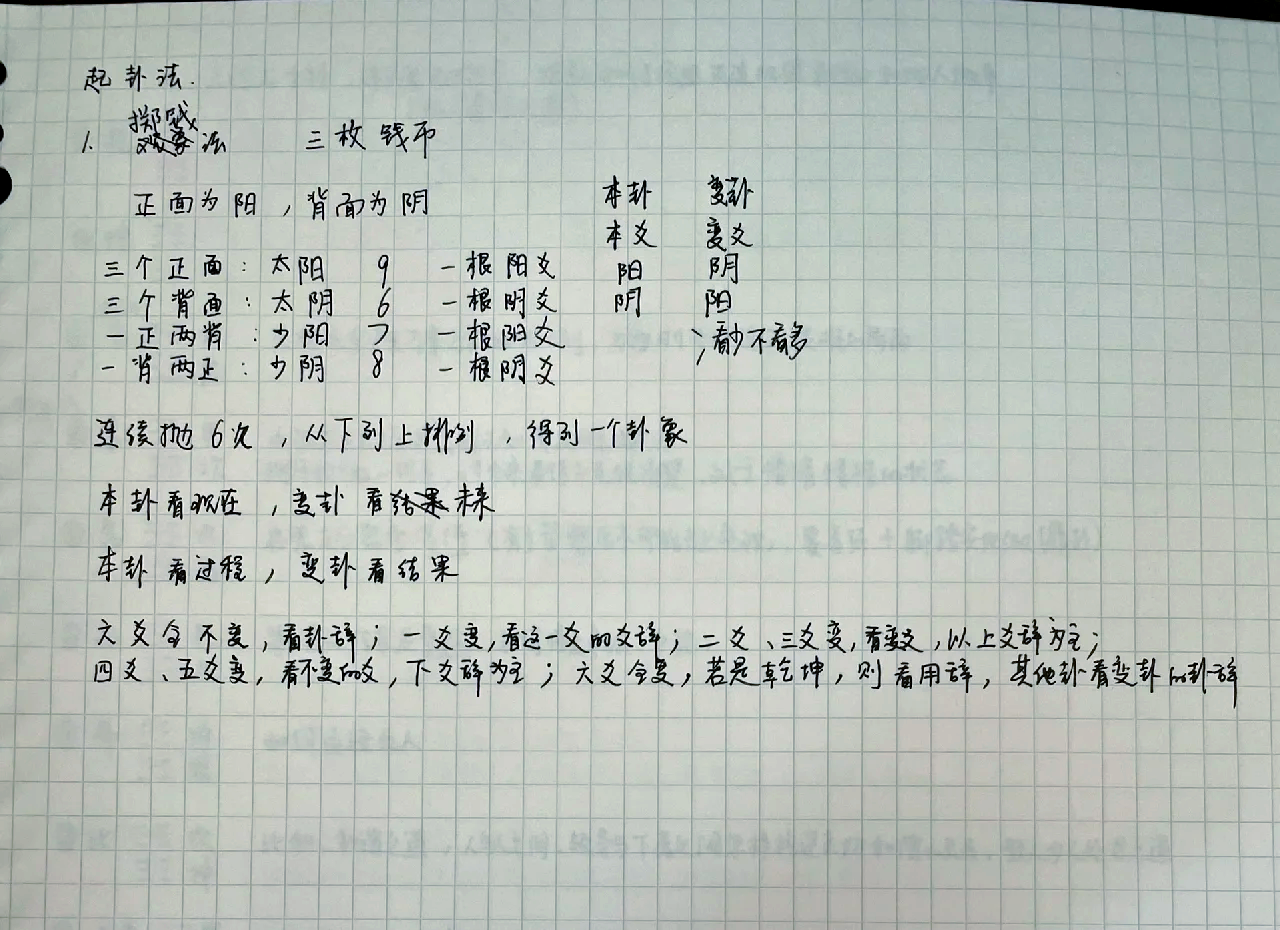 起卦法.
掷钱
1. 法 三枚钱币
正面为阳，背面为阴 本卦 变卦
本爻 变爻
三个正面：太阳 9 一根阳爻 阳 阴
三个背面：太阴 6 一根阴爻 阴 阳
一正两背：少阳 7 一根阳爻 ；看少不看多
一背两正：少阴 8 一根阴爻
连续抛6次，从下到上排列，得到一个卦象
本卦看现在，变卦看未来
本卦看过程，变卦看结果
六爻全不变，看卦辞；一爻变，看这一爻的爻辞；二爻、三爻变，看变爻，以上爻辞为主；
四爻、五爻变，看不变的爻，下爻辞为主；六爻全变，若是乾坤，则看用辞，其他卦看变卦的卦辞